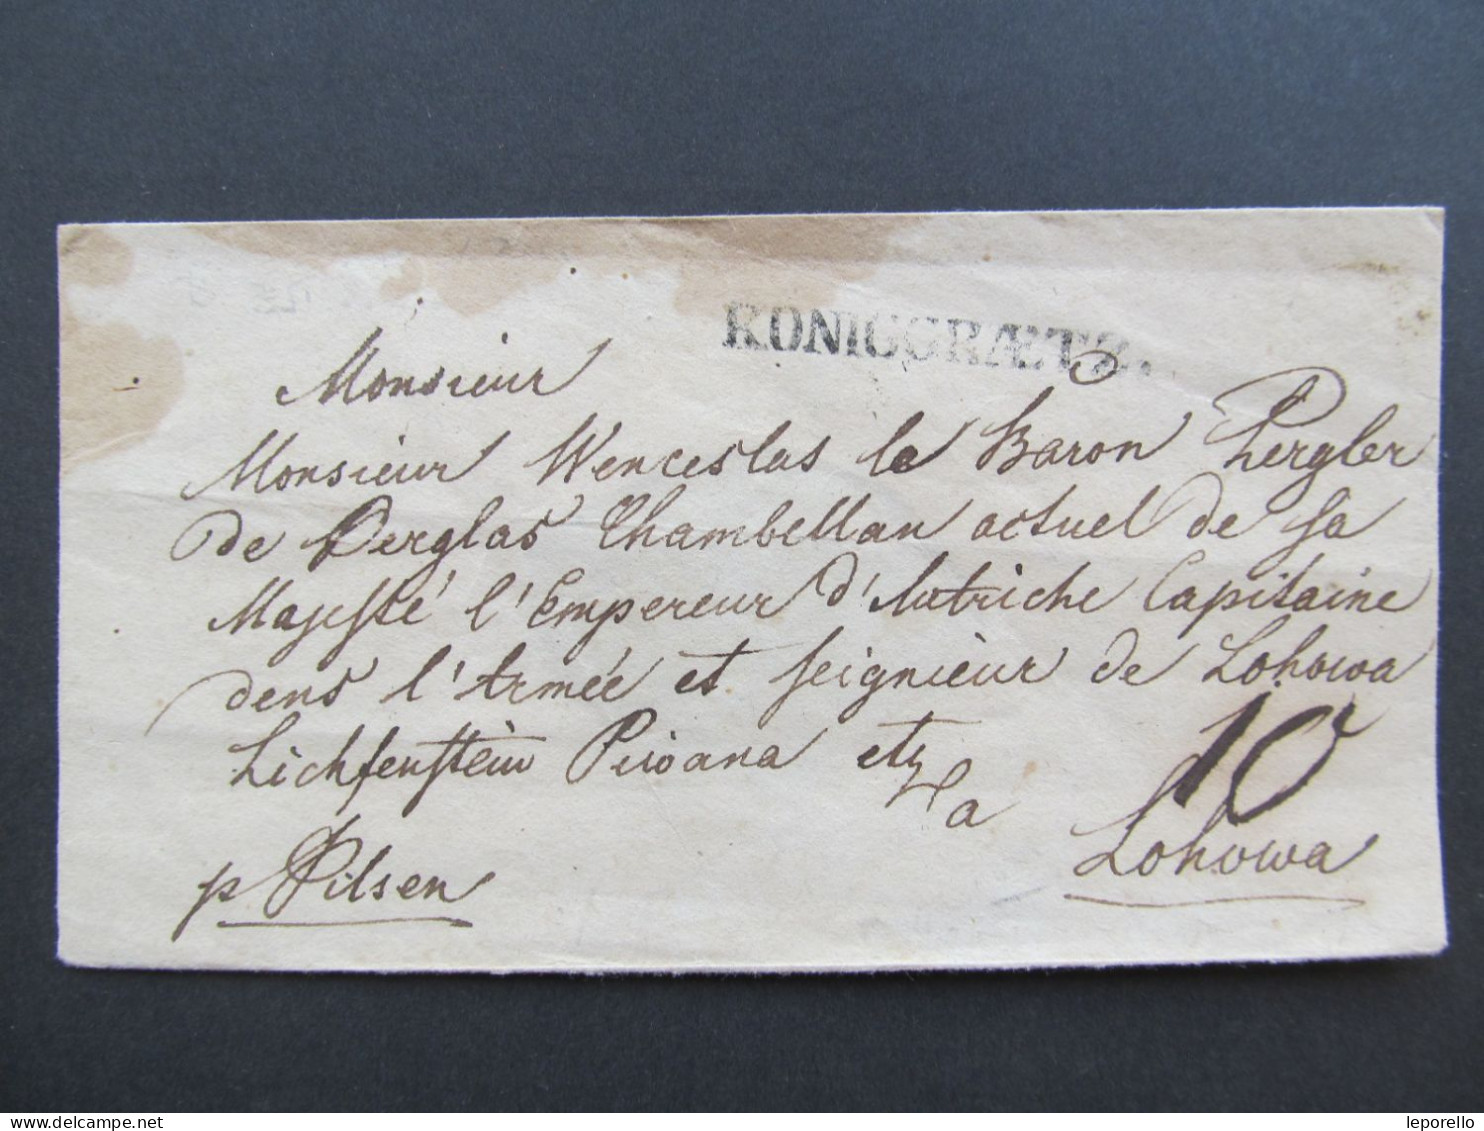 KONIGGRÆTZ.
Monsieur
Monsieur Wenceslas le Baron Pergler
de Perglas Chambellan actuel de Sa
Majesté l'Empereur d'Autriche Capitaine
dens l'Armée et Seignieur de Lohowa
Lichtenstein Piwana etz
a
10
Lohowa
p Pilsen
leporello